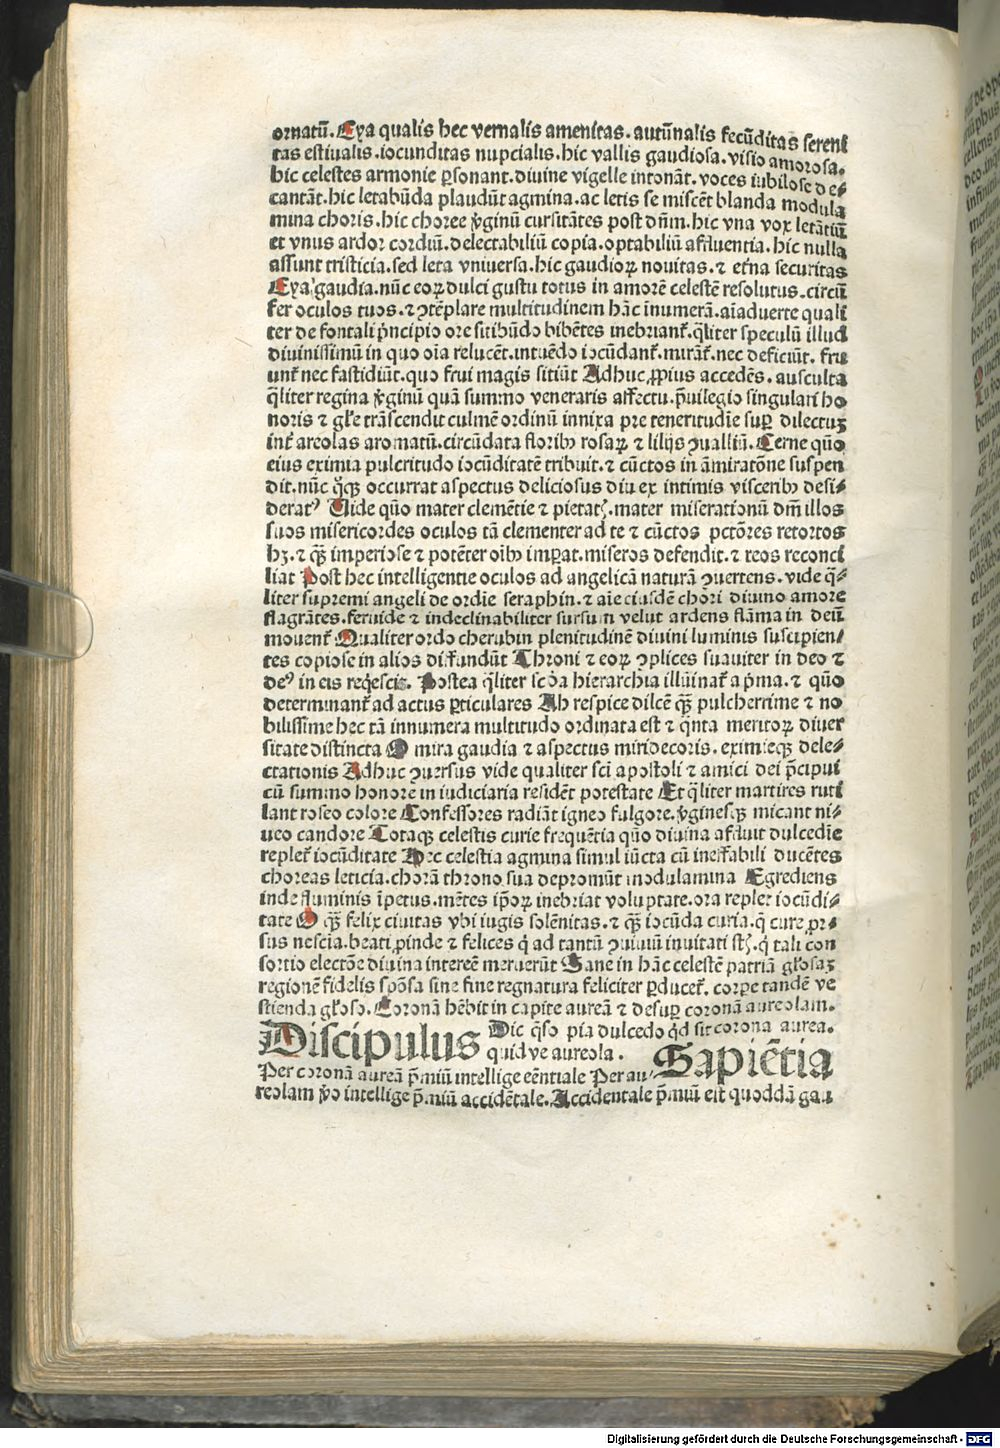 ornatū. Eya qualis hec vernalis amenitas. autūnalis fecūditas sereni
tas estiualis. iocunditas nupcialis. hic vallis gaudiosa. visio amorosa.
hic celestes armonie ꝑsonant. diuine vigelle intonāt. voces iubilose de⸗
cantāt. hic letabūda plaudūt agmina. ac letis se miscēt blanda modula
mina choris. hic choree v̾ginū cursitātes post dn̄m. hic vna vox letātiū
et vnus ardor cordiū. delectabiliū copia. optabiliū affluentia. hic nulla
assunt tristicia. sed leta vniuersa. hic gaudioꝝ nouitas. ⁊ et̾na securitas
Eya gaudia. nūc eoꝝ dulci gustu totus in amorē celestē resolutus. circū
fer oculos tuos. ⁊ ꝯtēplare multitudinem hāc inumerā. aīaduerte quali
ter de fontali p̄ncipio ore sitibūdo bibētes inebriant̾. q̄liter speculū illud
diuinissimū in quo oīa relucēt. intuēdo iocūdant̾. mirāt̾. nec deficiūt. fru
unt̾ nec fastidiūt. quo frui magis sitiūt Adhuc ꝓpius accedēs. ausculta
q̄liter regina v̾ginū quā summo veneraris affectu. p̄uilegio singulari ho
noris ⁊ gl̄e trāscendit culmē ordinū innixa pre teneritudīe suꝑ dilectuꝫ
int̾ areolas aromatū. circūdata floribꝫ rosaꝝ ⁊ lilijs ꝯualliū. Cerne quō
eius eximia pulcritudo iocūditatē tribuit. ⁊ cūctos in āmiratōne suspen
dit. nūc q̊q̄ꝫ occurrat aspectus deliciosus diu ex intimis visceribꝫ desi⸗
deratꝰ Uide quō mater clemētie ⁊ pietatꝭ. mater miserationū dīm illos
suos misericordes oculos tā clementer ad te ⁊ cūctos pctōres retortos
hꝫ. ⁊ q̄ꝫ imperiose ⁊ potēter oībꝫ imꝑat. miseros defendit. ⁊ reos reconci
liat Post hec intelligentie oculos ad angelicā naturā ꝯuertens. vide q̄⸗
liter supremi angeli de ordīe seraphin. ⁊ aīe eiusdē chori diuino amore
flagrātes. feruide ⁊ indeclinabiliter sursum velut ardens flāma in deū
mouent̾ Qualiter ordo cherubin plenitudinē diuini luminis suscipien⸗
tes copiose in alios diffundūt Throni ⁊ eoꝝ ꝯplices suauiter in deo ⁊
deꝰ in eis req̄escit. Postea q̄liter sc̄da hierarchia illūinat̾ a p̄ma. ⁊ quō
determinant̾ ad actus ꝑticulares Ah respice dilcē q̄ꝫ pulcherrime ⁊ no
bilissime hec tā innumera multitudo ordinata est ⁊ q̄nta meritoꝝ diuer
sitate distincta O mira gaudia ⁊ aspectus miri decoris. eximieqꝫ dele⸗
ctationis Adhuc ꝯuersus vide qualiter sc̄i apostoli ⁊ amici dei p̄cipui
cū summo honore in iudiciaria residēt potestate Et q̄liter martires ruti
lant roseo colore Confessores radiāt igneo fulgore. v̾ginesqꝫ micant ni⸗
ueo candore Totaqꝫ celestis curie frequētia quō diuina affluit dulcedīe
replet̾ iocūditate Hec celestia agmina simul iūcta cū ineffabili ducētes
choreas leticia. chorā throno sua depromūt modulamina Egrediens
inde fluminis īpetus. mētes ip̄oꝝ inebriat voluptate. ora replet iocūdi⸗
tate O q̄ꝫ felix ciuitas vbi iugis solēnitas. ⁊ q̄ꝫ iocūda curia. q̄ cure ꝓr⸗
sus nescia. beati ꝓinde ⁊ felices q̇ ad tantū ꝯuiuiū inuitati st̄. q̇ tali con
sortio electōe diuina interee meruerūt Sane in hāc celestē patriā gl̄osaꝫ
regionē fidelis spōsa sine fine regnatura feliciter ꝑducet̾. corꝑe tandē ve
stienda gl̄oso. Coronā hēbit in capite aureā ⁊ desuꝑ coronā aureolam.
Discipulus Dic q̄so pia dulcedo q̊d sit corona aurea.
quid ve aureola. Sapiētia
Per coronā aureā p̄miū intellige eēntiale Per au⸗
reolam v̊o intellige p̄miū accidētale. Accidentale p̄miū est quoddā gau
Digitalisierung gefördert durch die Deutsche Forschungsgemeinschaft - DFG